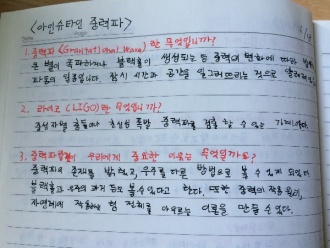 <아인슈타인 중력파>
1. 중력파 (Gravitational Wave)란 무엇입니까?
큰 별이 폭파하거나 블랙홀이 생성되는 등 중력의 변화에 따라
파동의 일종입니다. 잠시 시간과 공간을 일그러뜨리는 것으로
2. 라이고 (LIGO)란 무엇입니까?
중성자별 충돌이나 초신성 폭발 중력파를 검출할 수 있는
3. 중력파 우리에게 중요한 이유는 무엇일까요?
중력파의 존재를 밝히고, 우주를 다른 방법으로 볼 수 있게 되었다.
블랙홀과 우주의 과거 등도 볼 수 있다고 한다. 또한 중력의 작용 원리,
자연계에 작용하는 힘 전체를 아우르는 이론을 만들 수 있다.